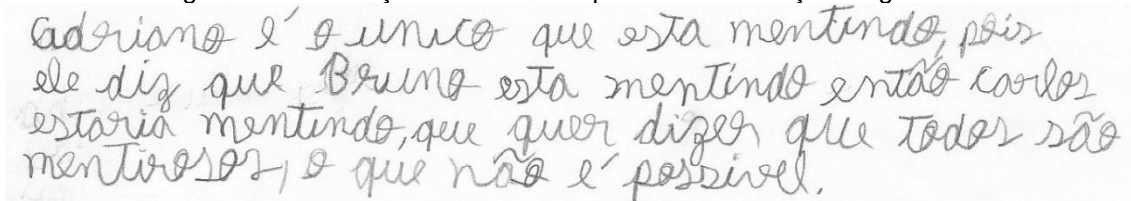 Cadriano é o unico que esta mentindo, pois
ele diz que Bruno esta mentindo então carlos
estaria mentindo, que quer dizer que todos são
mentirosos, o que não é possivel.